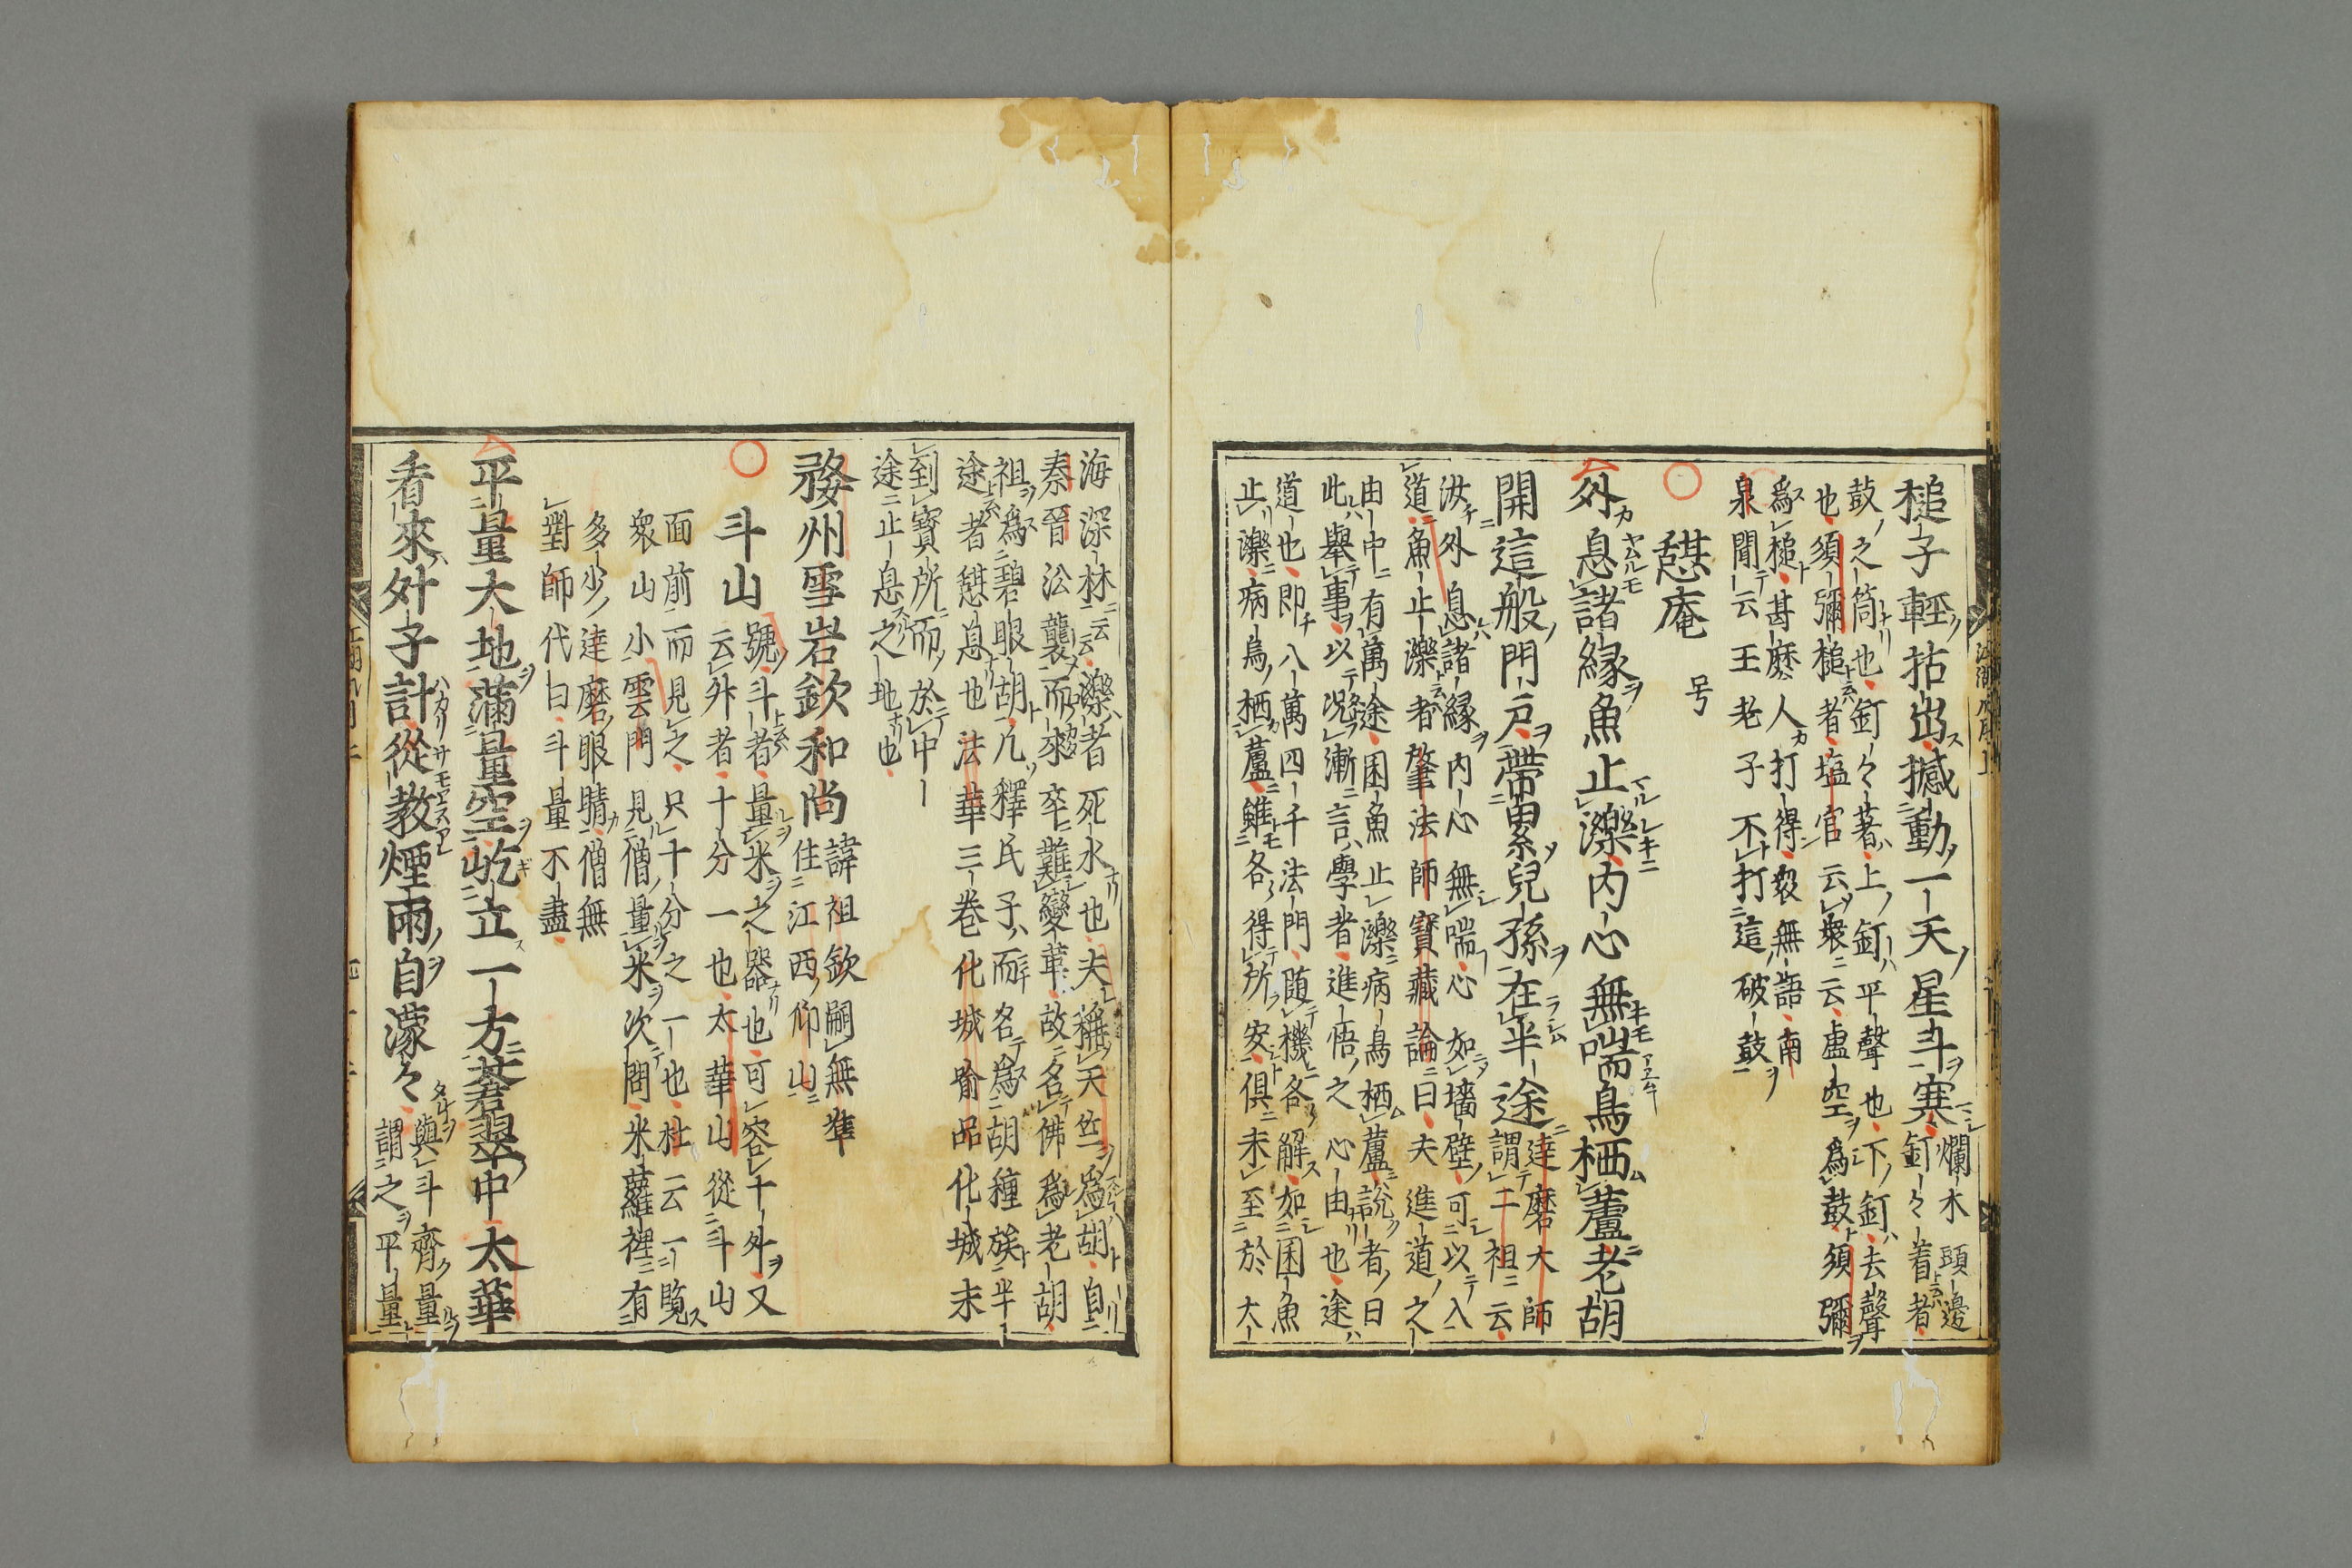 槌子輕拈出撼動一天星斗寒
爛木頭邊
釘々着者
鼓之筒也釘々著上釘平聲也下釘去聲
也須彌槌者塩官云衆云虚空爲鼓須彌
爲槌甚麽人打得衆無語南
泉聞云王老子不打這破鼓
憇庵 号
外息諸縁魚止濼内心無喘鳥栖蘆老胡
開這般門戸帶累兒孫在半途
達磨大師
謂二祖云
汝外息諸縁内心無喘心如墻壁可以入
道魚止濼者肇法師寶藏論曰夫進道之
由中有萬途困魚止濼病鳥栖蘆説者曰
此舉事以况漸言學者進悟之心由也途
道也即八萬四千法門随機各解如困魚
止濼病鳥栖蘆雖各得所安俱未至於大
海深林云濼者死水也夫稱天竺爲胡自
秦晉㳂襲而來卒難變革故名佛爲老胡
祖爲碧眼胡凡釋氏子而名爲胡種族半
途者憇息也法華三巻化城喩品化城未
到寶所而於中
途止息之地也
婺州雪岩欽和尚
諱祖欽嗣無準
住江西仰山
斗山
號斗者量米之器也可容十升又
云升者十分一也太華山從斗山
面前而見之只十分之一也杜云一覧
衆山小雲門見僧量米次問米籮裡有
多少達磨眼睛僧無
對師代曰斗量不盡
平量大地滿量空屹立一方蒼翠中太華
看來升子計從教煙雨自濛々
與斗齊量
謂之平量